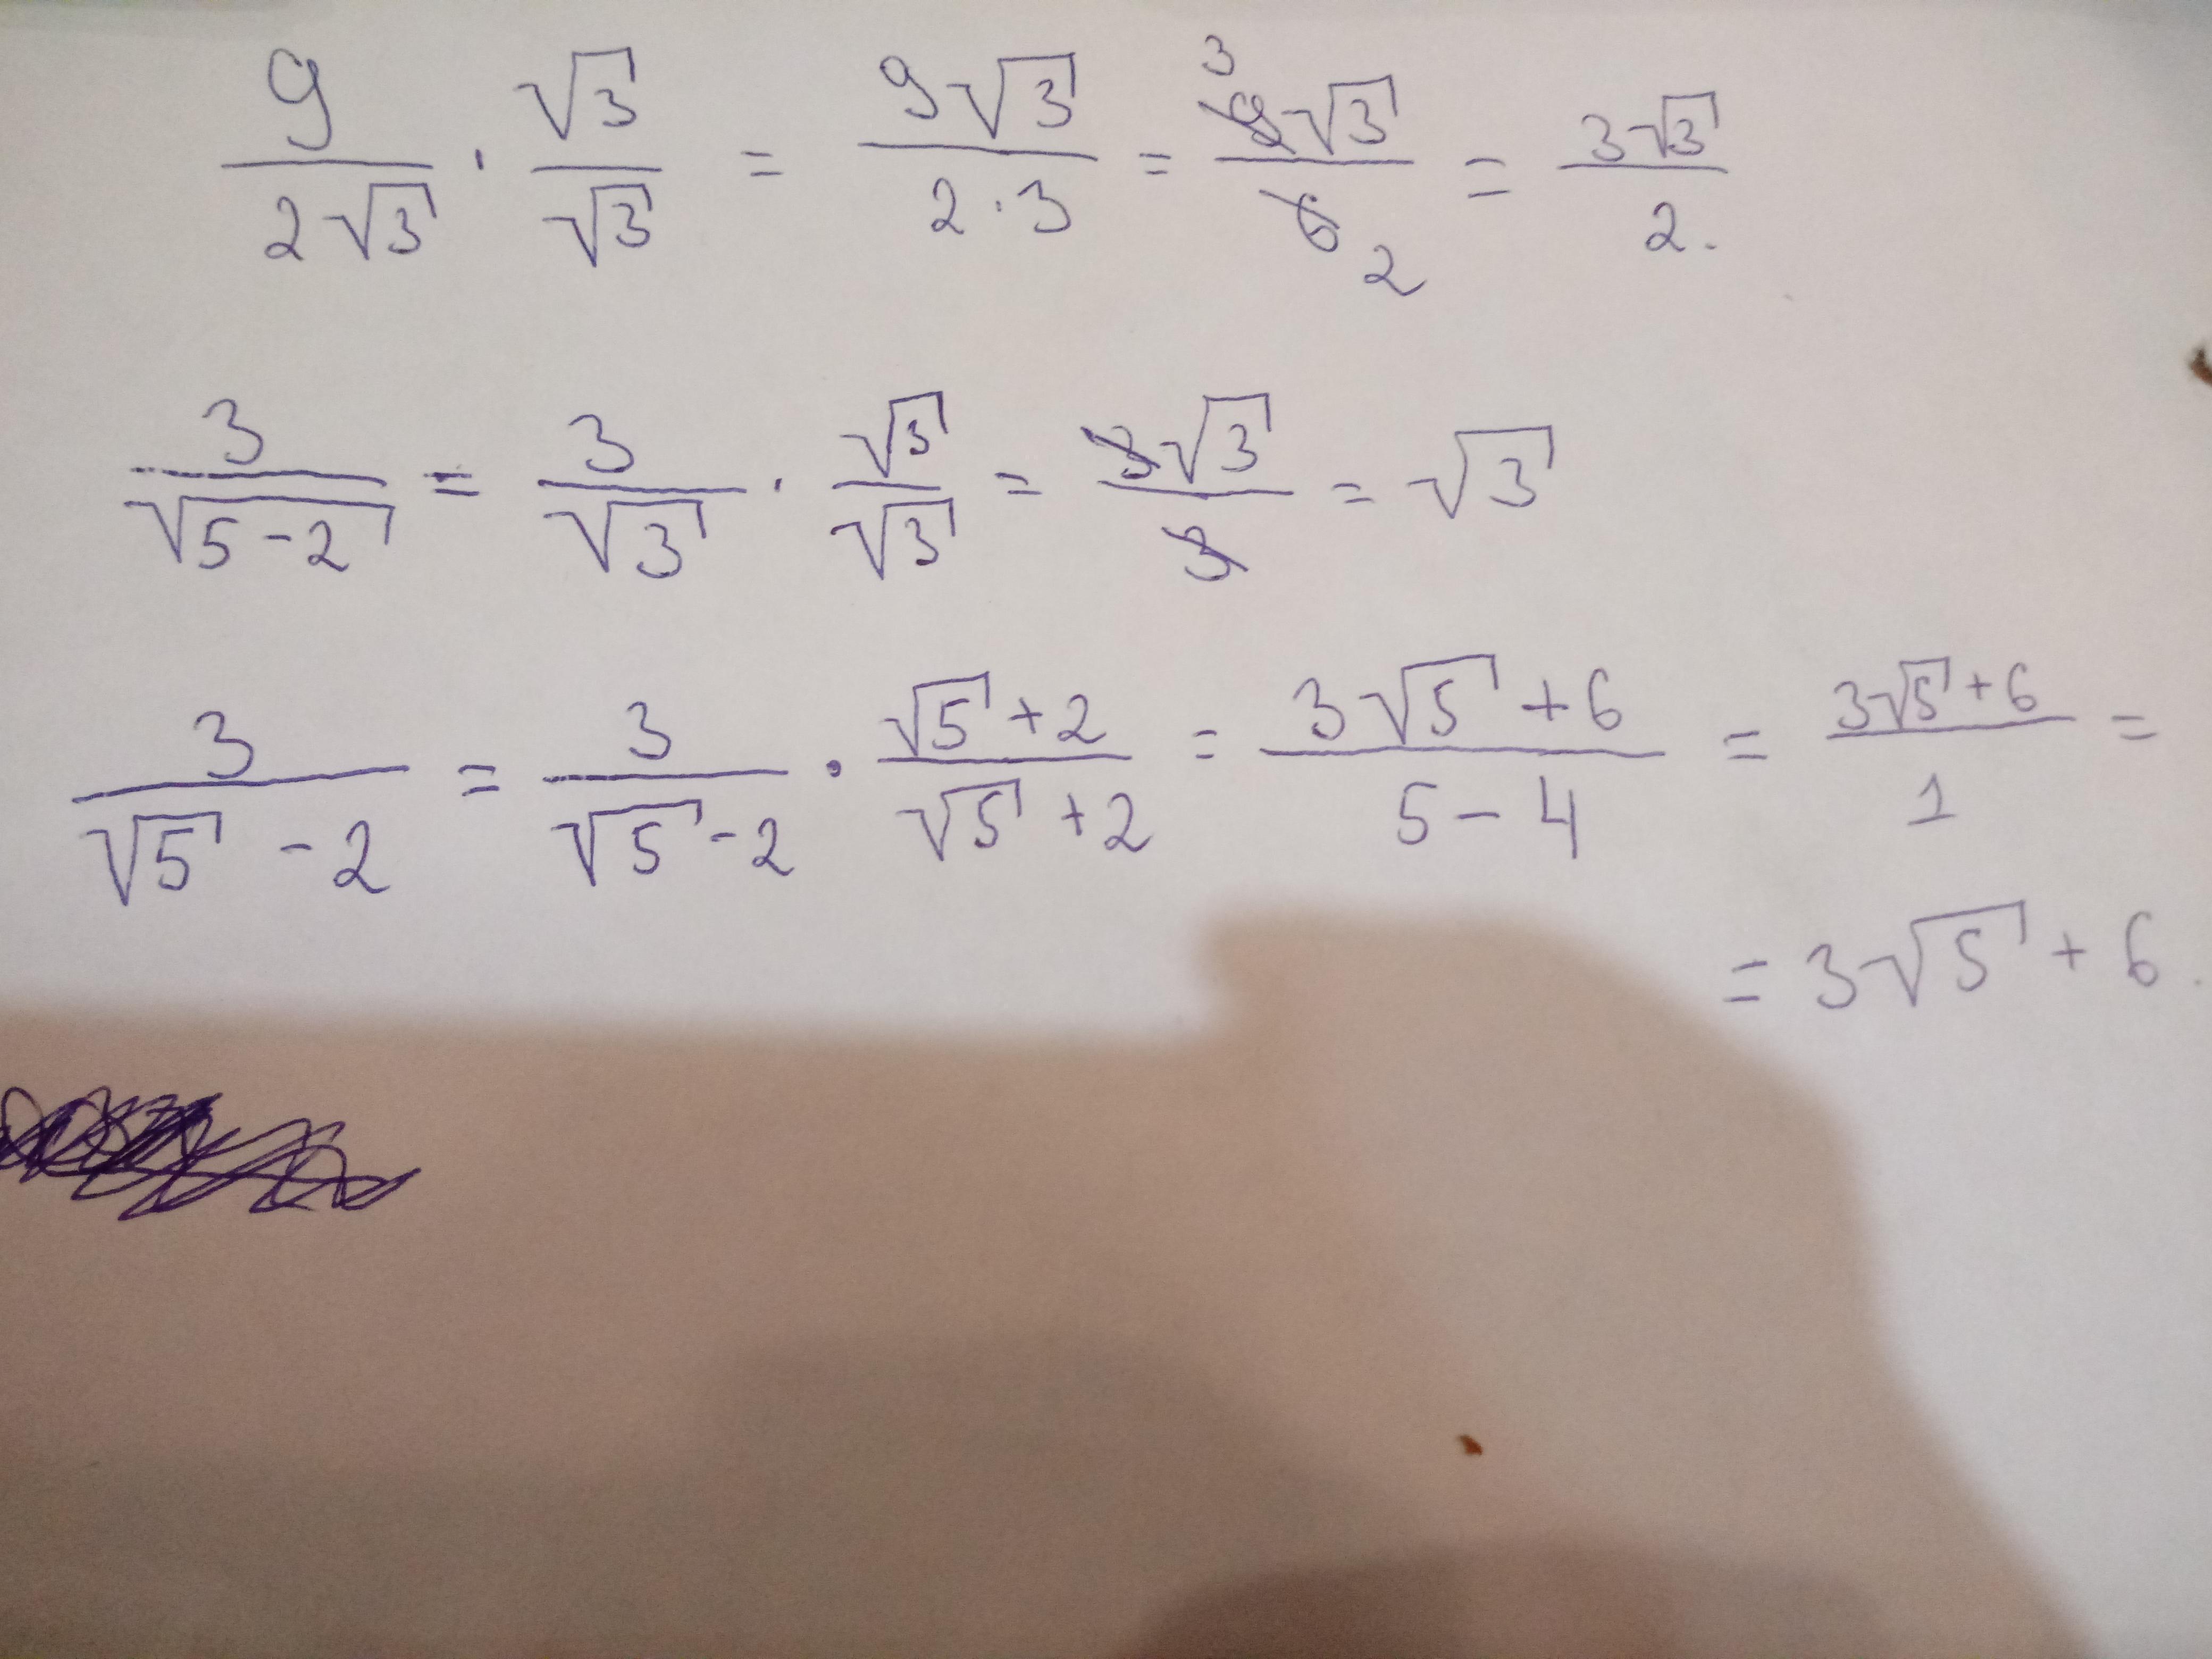 9/(2√3) · √3/√3 = 9√3/(2·3) = 9̶ 3√3/6̶ 2 = 3√3/2.
3/√(5-2) = 3/√3 · √3/√3 = 3̶√3/3̶ = √3
3/(√5 - 2) = 3/(√5 - 2) · (√5 + 2)/(√5 + 2) = (3√5 + 6)/(5 - 4) = (3√5 + 6)/1 =
= 3√5 + 6.